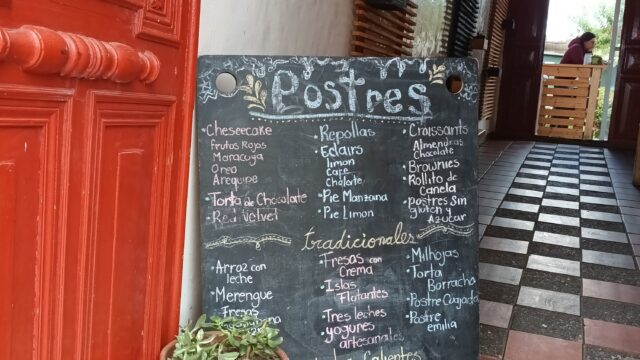 Postres
· Cheseecake
frutos Rojos
Maracuya
Oreo
Arequipe
· Torta de Chocolate
· Red Velvel
· Repollas
· Eclairs
limon
cafe
· Pie Manzana
· Pie Limon
· Croissants
Almendras
Chocolate
· Brownies
· Rollito de
Canela
· postres Sin
gluten y
Azucar
tradicionales
· Arroz con
leche
· Merengue
Fresas
· Fresas con
Crema
· Islas
Flotantes
· Tres leches
· yogures
artesanales
· Milhojas
· Torta
Borracha
· Postre Cuajada
· Postre
emilia
Calientes